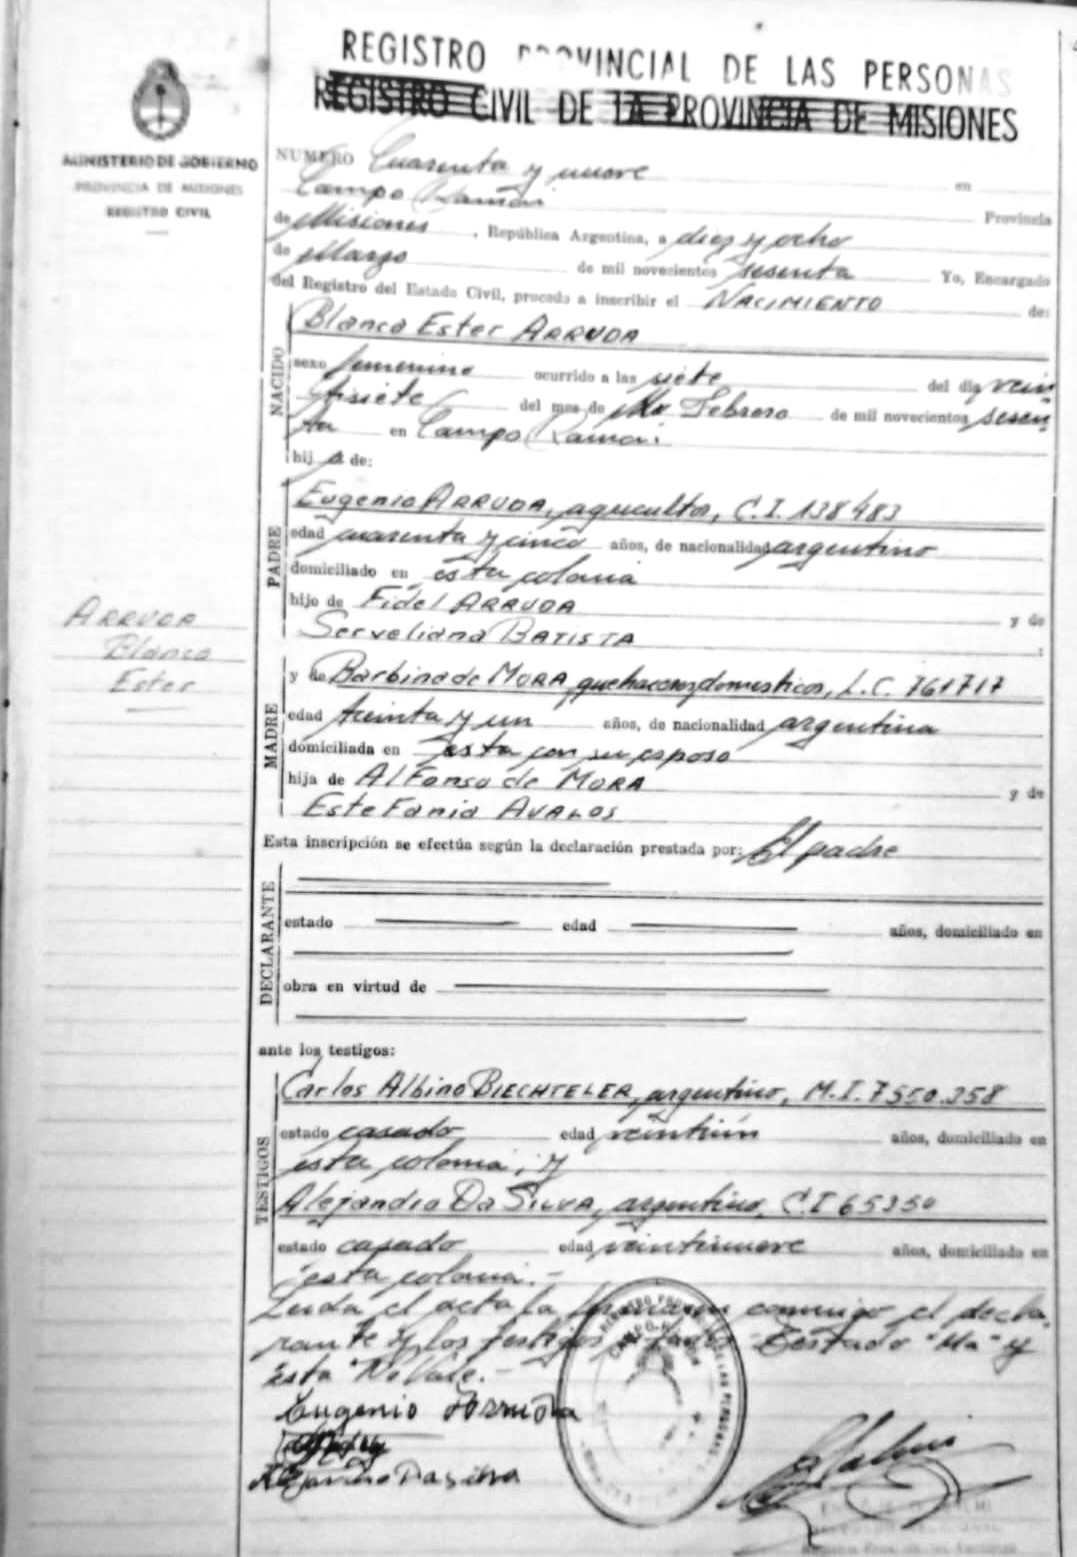 REGISTRO PROVINCIAL DE LAS PERSONAS
REGISTRO CIVIL DE LA PROVINCIA DE MISIONES
MINISTERIO DE GOBIERNO
PROVINCIA DE MISIONES
REGISTRO CIVIL
NUMERO Cuarenta y nueve en
Campo Ramón Provincia
de Misiones, República Argentina, a diez y ocho
de Marzo de mil novecientos sesenta Yo, Encargado
del Registro del Estado Civil, procedo a inscribir el NACIMIENTO de:
NACIDO
Blanca Ester ARRUDA
sexo femenino ocurrido a las siete del dia vein
tisiete del mes de Ma Febrero de mil novecientos sesen
ta en Campo Ramón
hij a de:
PADRE
Eugenio ARRUDA, agricultor, C.I. 138483
edad cuarenta y cinco años, de nacionalidad argentino
domiciliado en esta colonia
hijo de Fidel ARRUDA y de
Serveliana BATISTA :
ARRUDA
Blanca
Ester
MADRE
y de Barbina de MORA, quehaceres domesticos, L.C. 761717
edad treinta y un años, de nacionalidad argentina
domiciliada en esta con su esposo
hija de Alfonso de MORA y de
Estefania AVALOS
Esta inscripción se efectúa según la declaración prestada por: El padre
DECLARANTE
estado edad años, domiciliado en
obra en virtud de
ante los testigos:
TESTIGOS
Carlos Albino BIECHTELER, argentino, M.I. 7550.358
estado casado edad veintiún años, domiciliado en
esta colonia, y
Alejandro Da SILVA, argentino, C.I 65350
estado casado edad veintinueve años, domiciliado en
esta colonia.-
Leida el acta la firman conmigo el decla
rante y los testigos Testado "Ma" y
esta No Vale.-
Eugenio Arruda
Alejandro Da silva